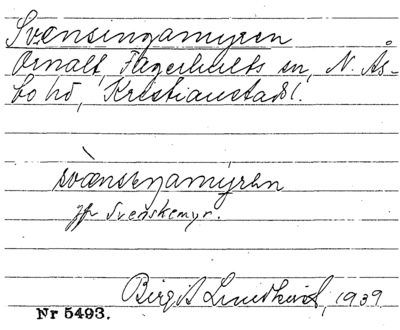 Svensingamyren
Ornalt, Fagerhults sn, N. Ås-
bo hd, Kristianstads l.
svænsengamýren
jfr Svenskemyr.
Birgit Lundkvist, 1939
Nr 5493.